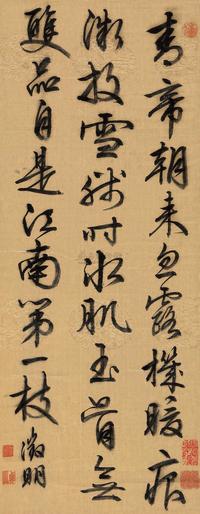 青帝朝来忽露機暖痕
微放雪殘时冰肌玉骨無
雙品自是江南第一枝 徵明